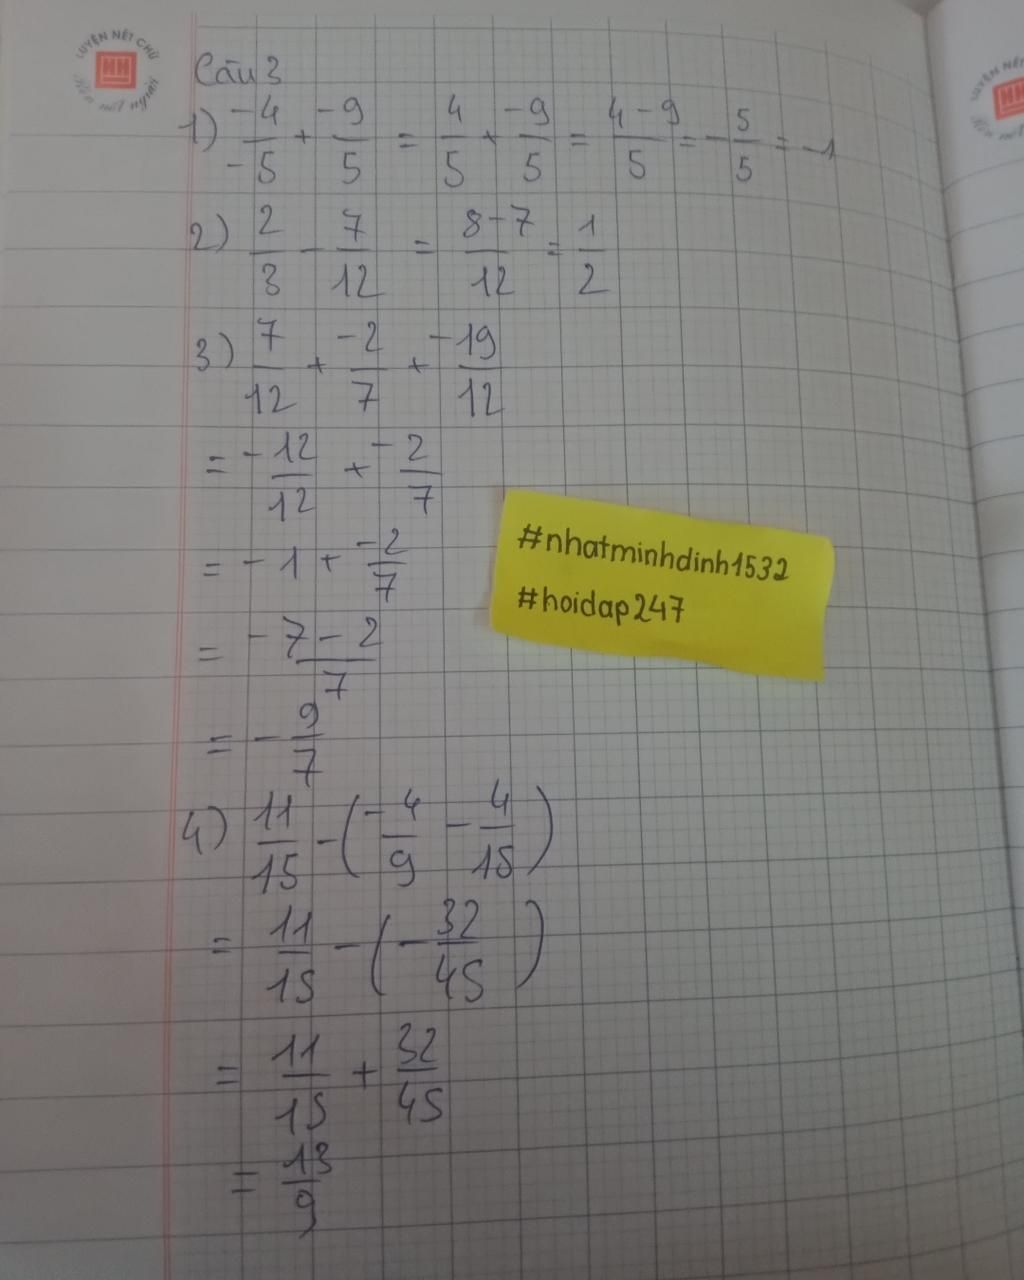 LUYỆN NÉT CHỮ
HH
Rèn nết người
Câu 3
1) -4/-5 + -9/5 = 4/5 + -9/5 = 4-9/5 = -5/5 = -1
2) 2/3 - 7/12 = 8-7/12 = 1/2
3) 7/12 + -2/7 + -19/12
= -12/12 + -2/7
= -1 + -2/7
= -7-2/7
= -9/7
4) 11/15 - (-4/9 - 4/15)
= 11/15 - (-32/45)
= 11/15 + 32/45
= 13/9
#nhatminhdinh1532
#hoidap247
LUYỆN NÉ
HH
Rèn nét